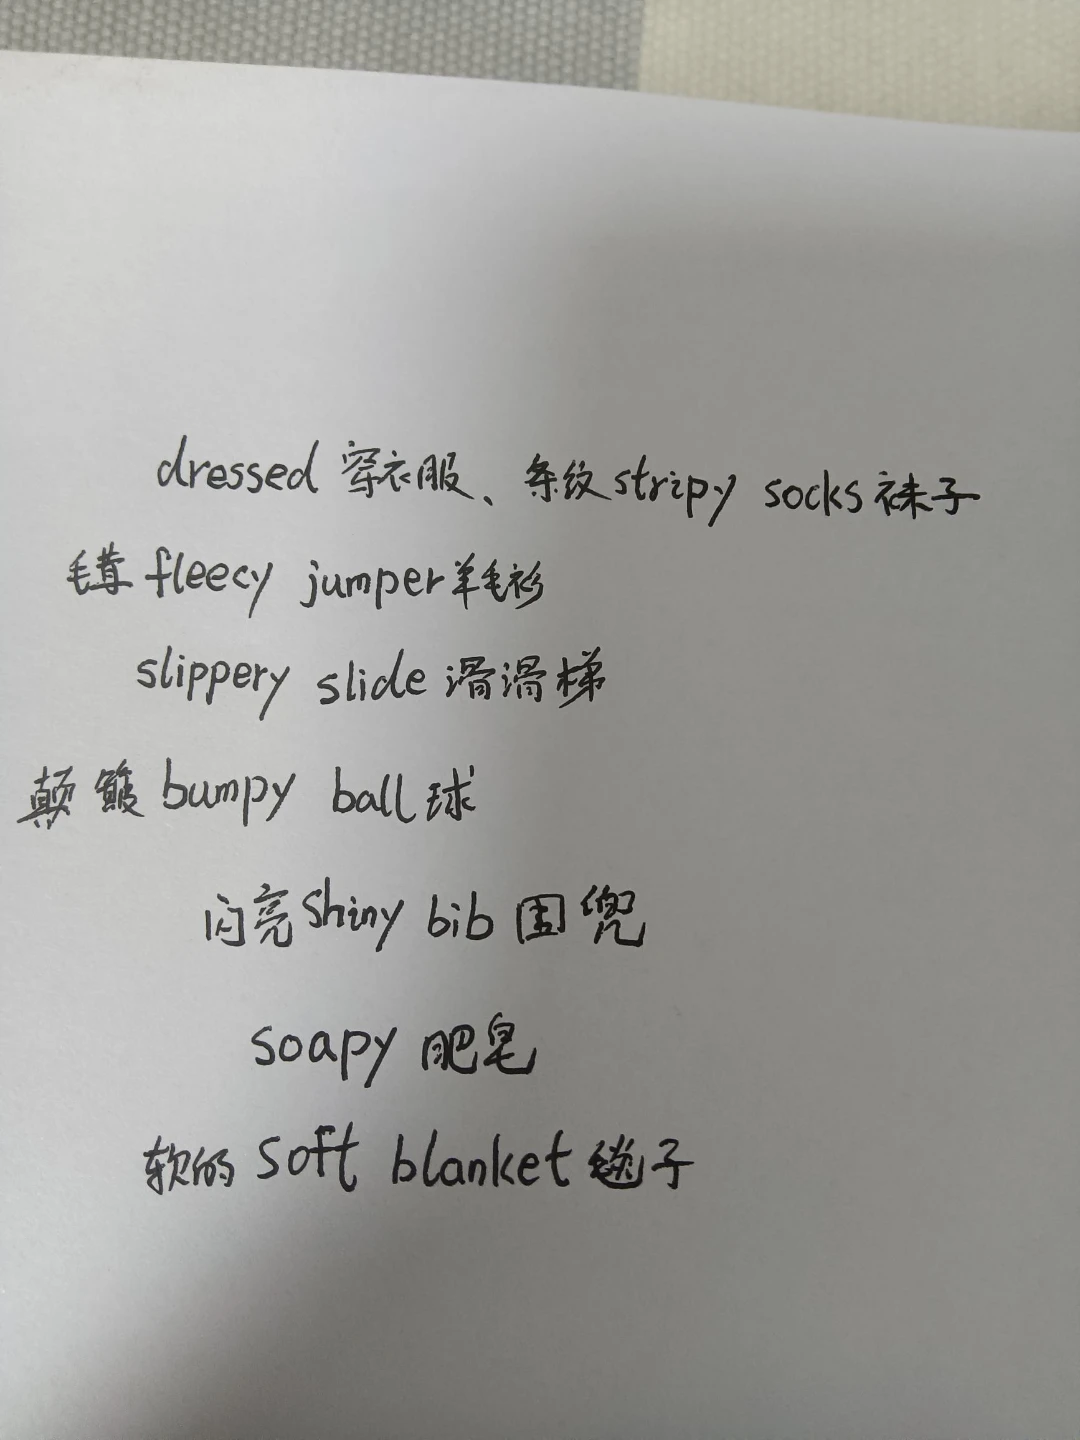 dressed 穿衣服、条纹 stripy socks 袜子
毛茸 fleecy jumper 羊毛衫
slippery slide 滑滑梯
颠簸 bumpy ball 球
闪亮 shiny bib 围兜
soapy 肥皂
软的 soft blanket 毯子